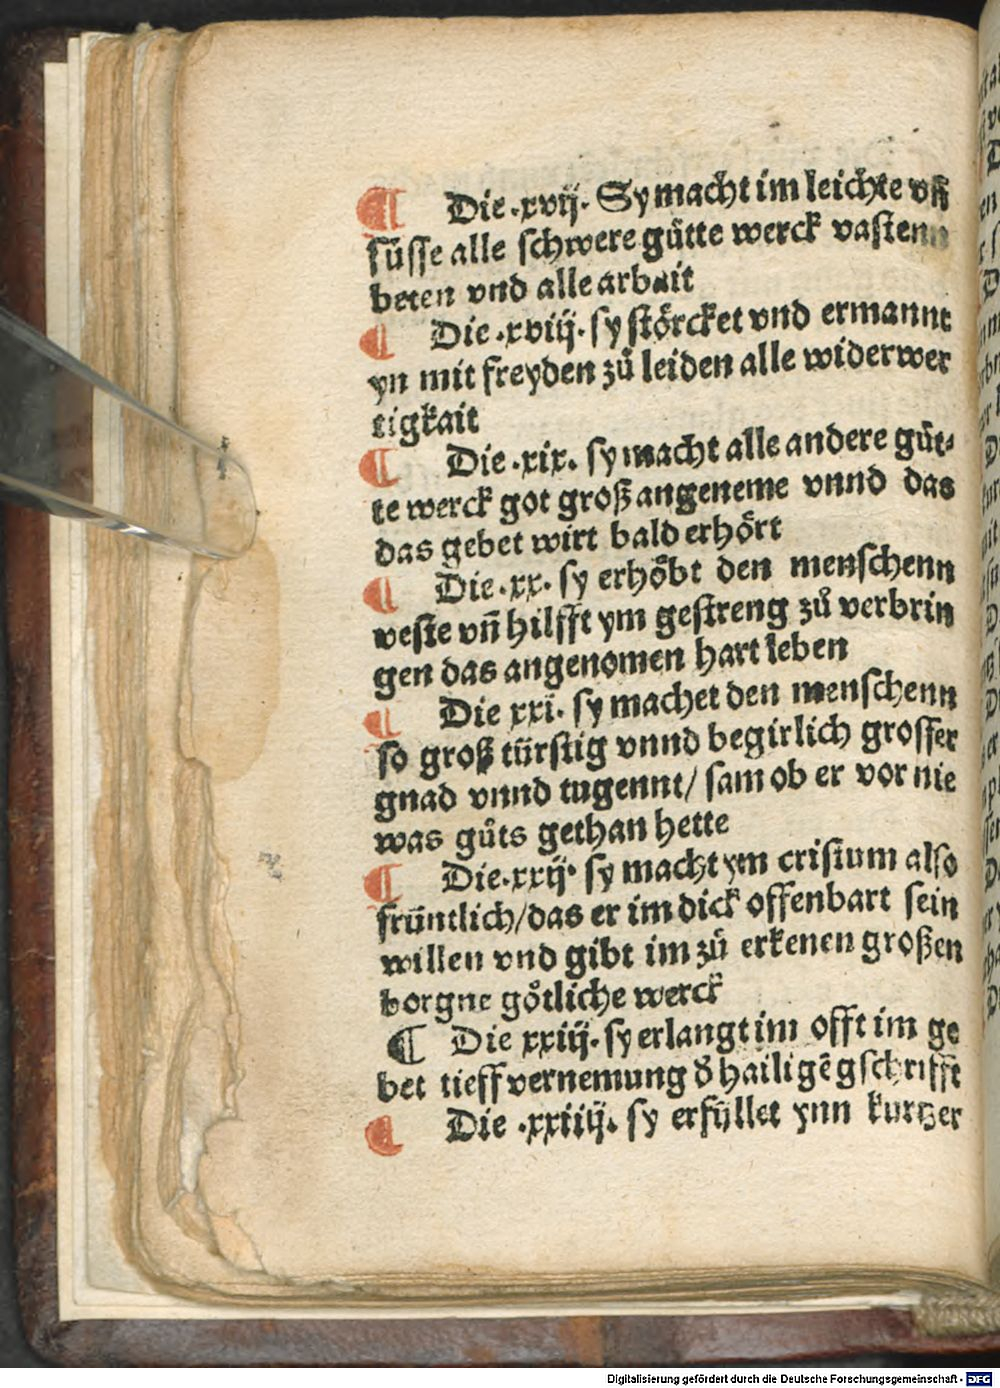 ¶ Die .xvij. Sy macht im leichte vñ
süsse alle schwere gůtte werck vastenn
beten vnd alle arbait
¶ Die .xviij. sy störcket vnd ermannt
yn mit freyden zů leiden alle widerwer
tigkait
¶ Die .xix. sy macht alle andere gůt⸗
te werck got groß angeneme vnnd das
das gebet wirt bald erhört
¶ Die .xx. sy erhöbt den menschenn
veste vñ hilfft ym gestreng zů verbrin
gen das angenomen hart leben
¶ Die xxi. sy machet den menschenn
so groß türstig vnnd begirlich grosser
gnad vnnd tugennt/ sam ob er vor nie
was gůts gethan hette
¶ Die .xxij. sy macht ym cristum also
früntlich/das er im dick offenbart sein
willen vnd gibt im zů erkenen großen
borgne götliche werck
¶ Die xxiij. sy erlangt im offt im ge
bet tieff vernemung d̓ hailigē gschrifft
¶ Die .xxiiij. sy erfüllet ynn kurtzer
Digitalisierung gefördert durch die Deutsche Forschungsgemeinschaft - DFG